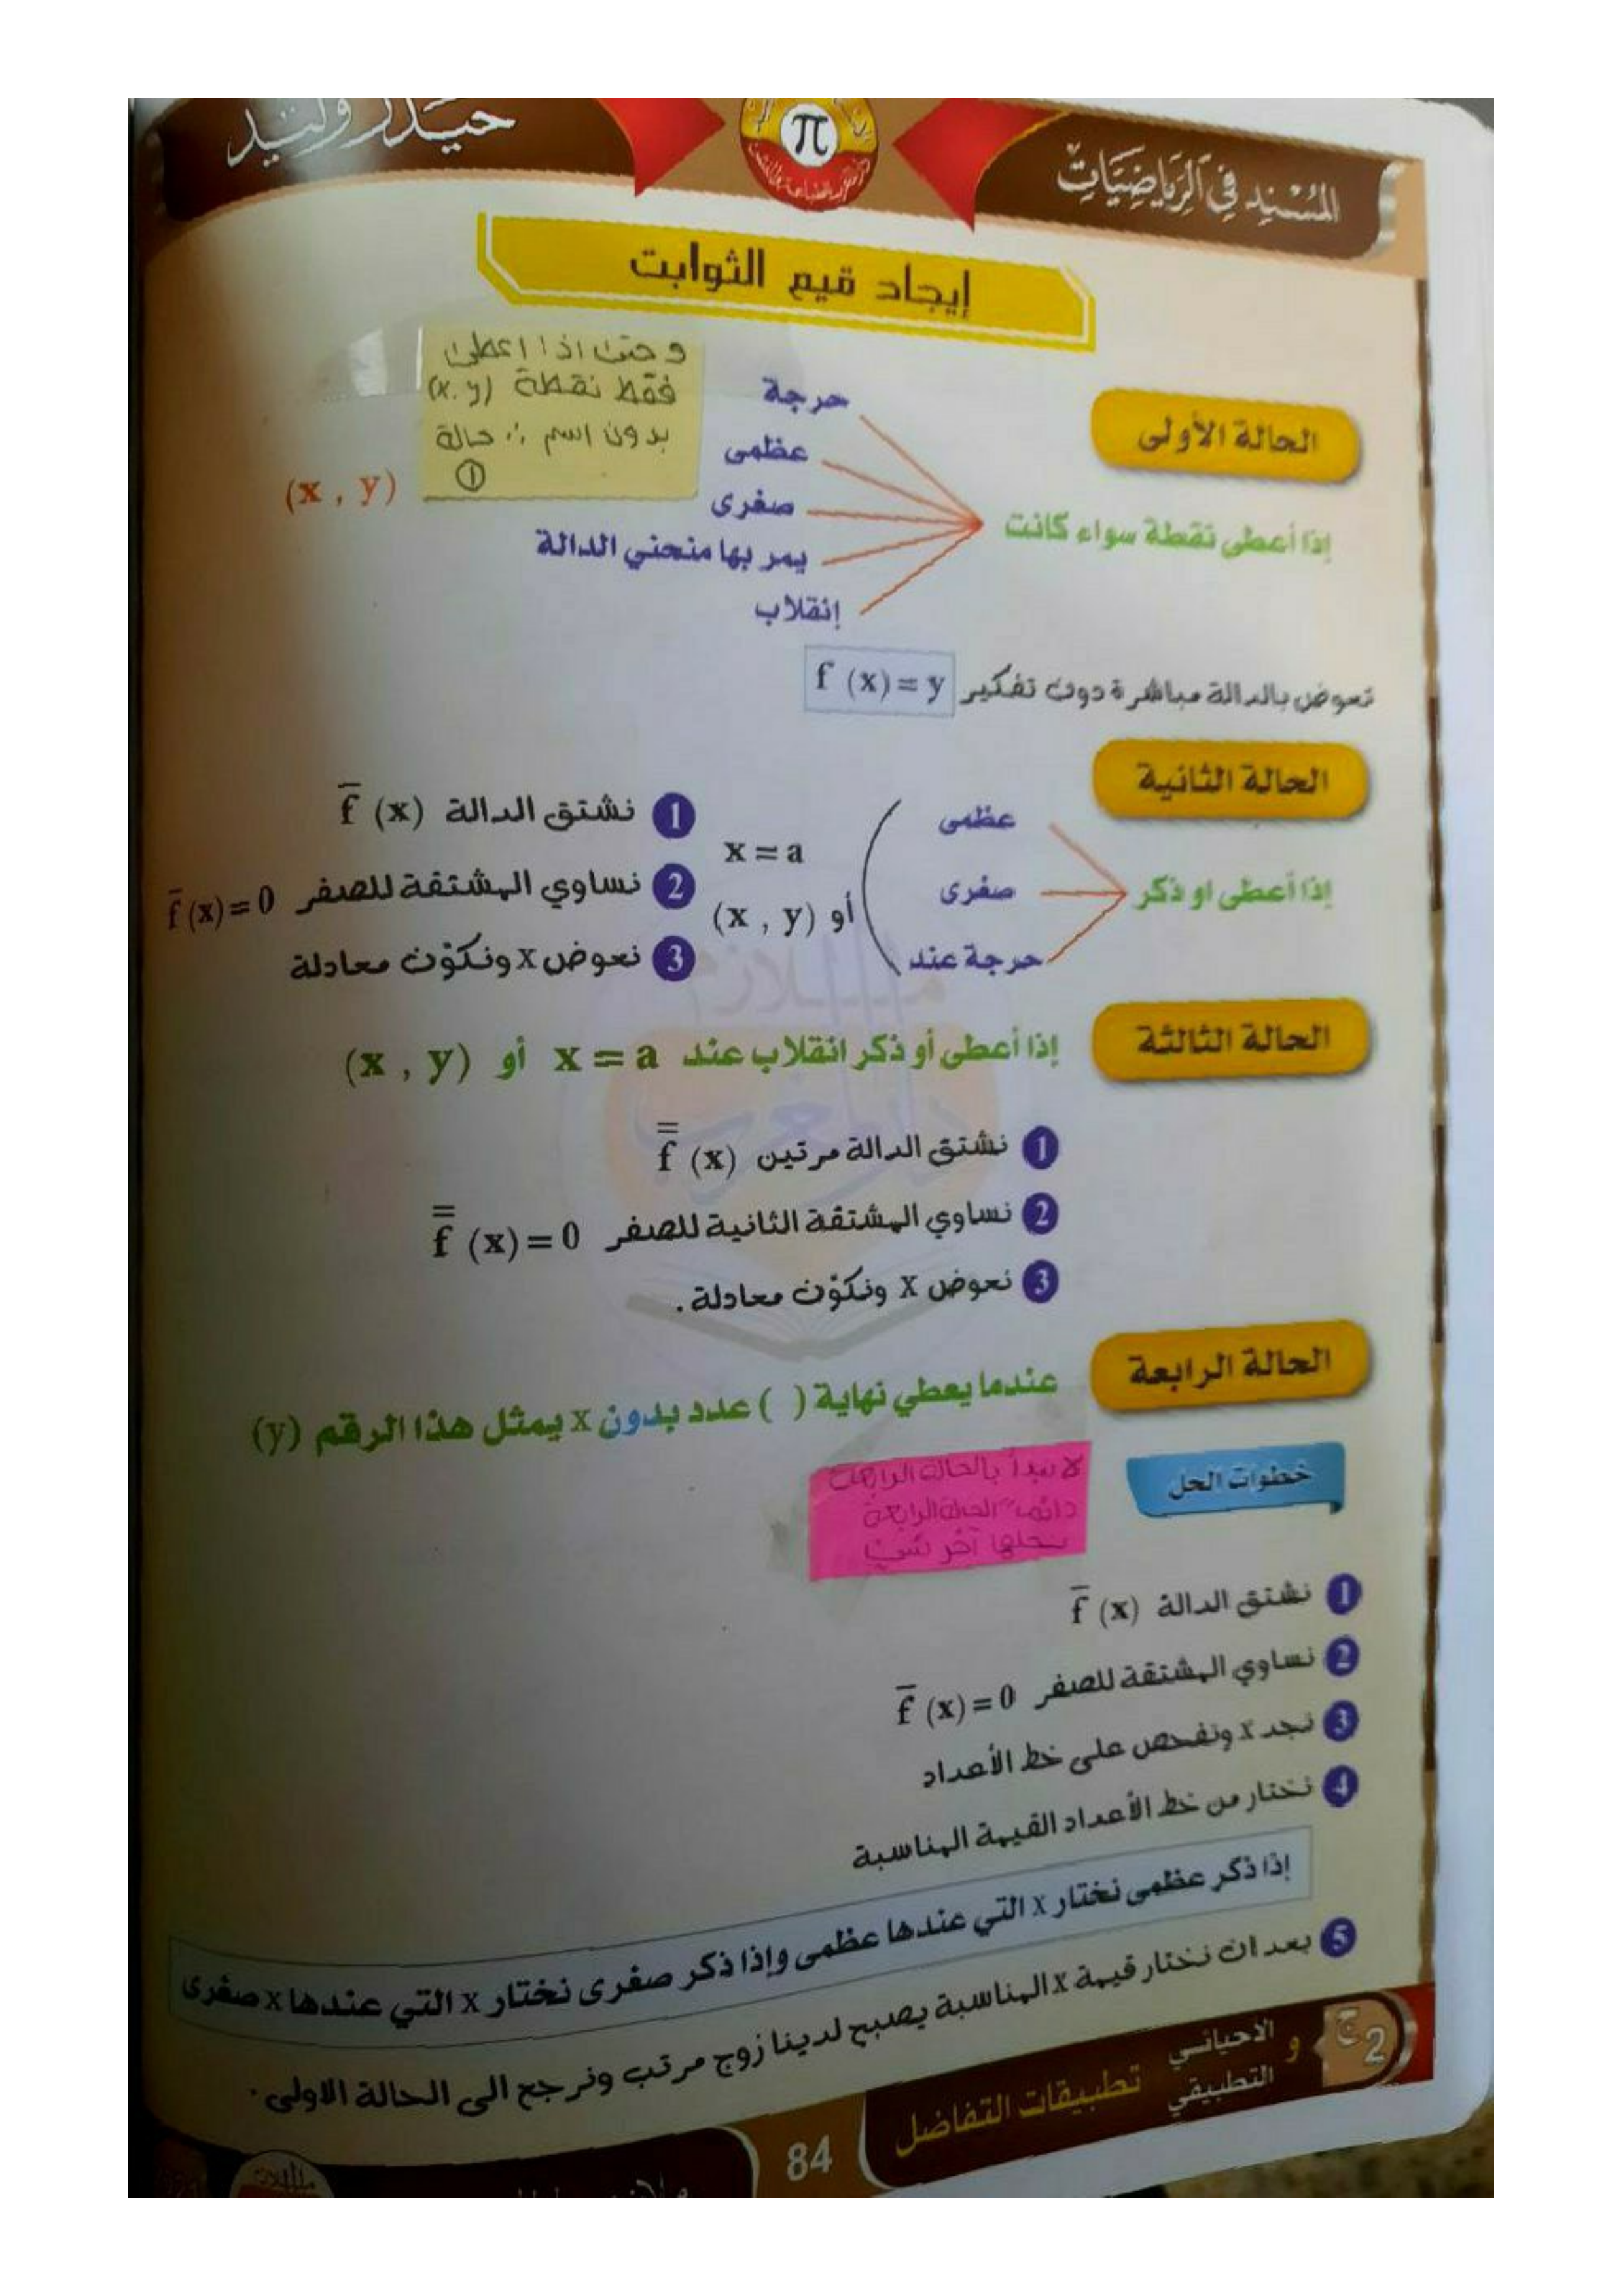 المُسْنِد فِي الرِيَاضِيَات
π
حيدر وليد
إيجاد قيم الثوابت
الحالة الأولى
إذا أعطى نقطة سواء كانت
حرجة
عظمى
صغرى
يمر بها منحني الدالة
إنقلاب
(x , y)
و حتى اذا اعطى
فقط نقطة (x.y)
بدون اسم ∴ حالة
①
نعوض بالدالة مباشرة دون تفكير f (x) = y
الحالة الثانية
إذا أعطى او ذكر
عظمى
صغرى
حرجة عند
x = a
أو (x , y)
1 نشتق الدالة f̄ (x)
2 نساوي المشتقة للصفر f̄ (x) = 0
3 نعوض x ونكوّن معادلة
الحالة الثالثة
إذا أعطى أو ذكر انقلاب عند x = a أو (x , y)
1 نشتق الدالة مرتين f̿ (x)
2 نساوي المشتقة الثانية للصفر f̿ (x) = 0
3 نعوض x ونكوّن معادلة .
الحالة الرابعة
عندما يعطي نهاية ( ) عدد بدون x يمثل هذا الرقم (y)
خطوات الحل
لا نبدأ بالحالة الرابعة
دائما" الحالة الرابعة
نحلها آخر شيء
1 نشتق الدالة f̄ (x)
2 نساوي المشتقة للصفر f̄ (x) = 0
3 نجد x ونفحص على خط الأعداد
4 نختار من خط الأعداد القيمة المناسبة
إذا ذكر عظمى نختار x التي عندها عظمى وإذا ذكر صغرى نختار x التي عندها x صغرى
5 بعد ان نختار قيمة x المناسبة يصبح لدينا زوج مرتب ونرجع الى الحالة الاولى .
ج2
الاحيائي و التطبيقي
تطبيقات التفاضل
84